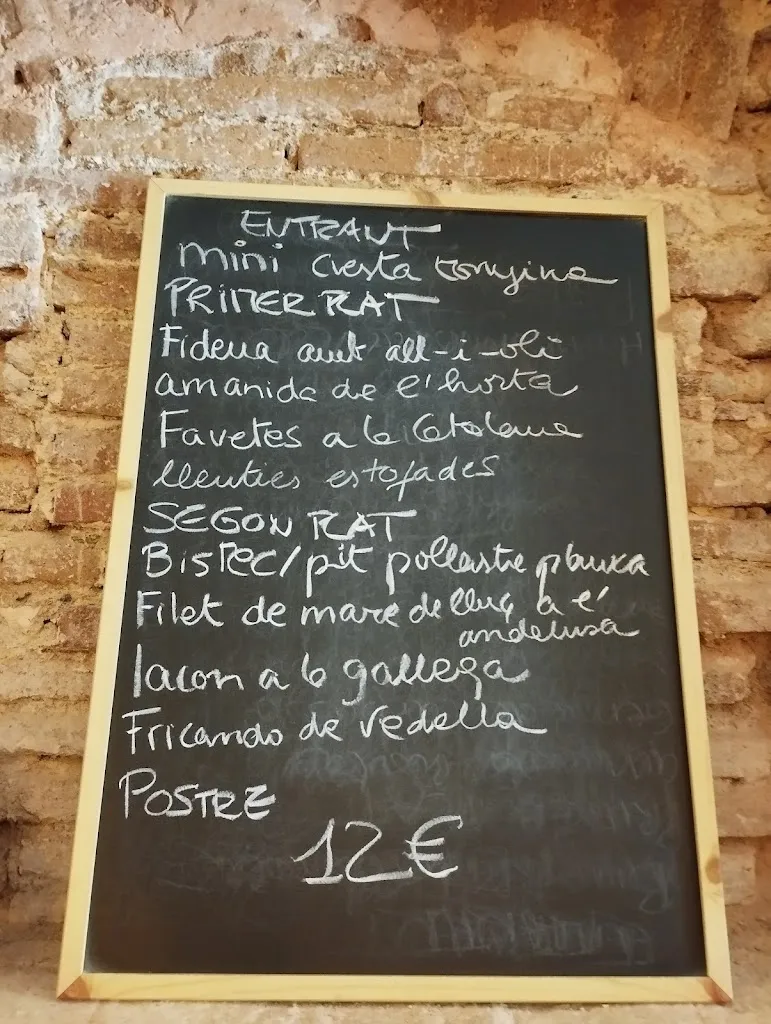 ENTRANT
mini cresta tonyina
PRIMER PLAT
Fideua amb all-i-oli
amanida de l'horta
Favetes a la Catalana
llenties estofades
SEGON PLAT
Bistec/pit pollastre planxa
Filet de mare de lluç a l'
andalusa
lacon a la gallega
Fricando de vedella
POSTRE
12€